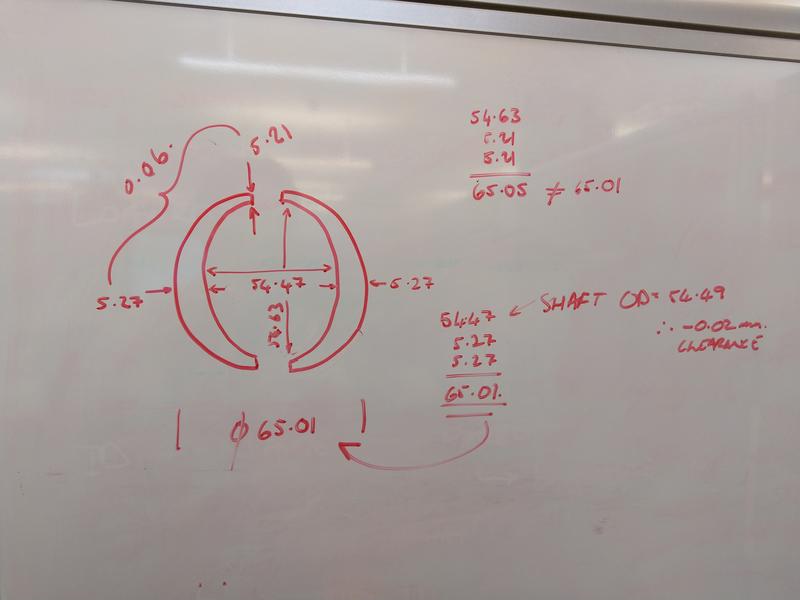 0.06.
5.21
5.27
54.47
5.27
54.63
ϕ 65.01
54.63
5.21
5.21
65.05 ≠ 65.01
54.47
5.27
5.27
65.01.
SHAFT OD = 54.49
∴ -0.02mm.
CLEARANCE